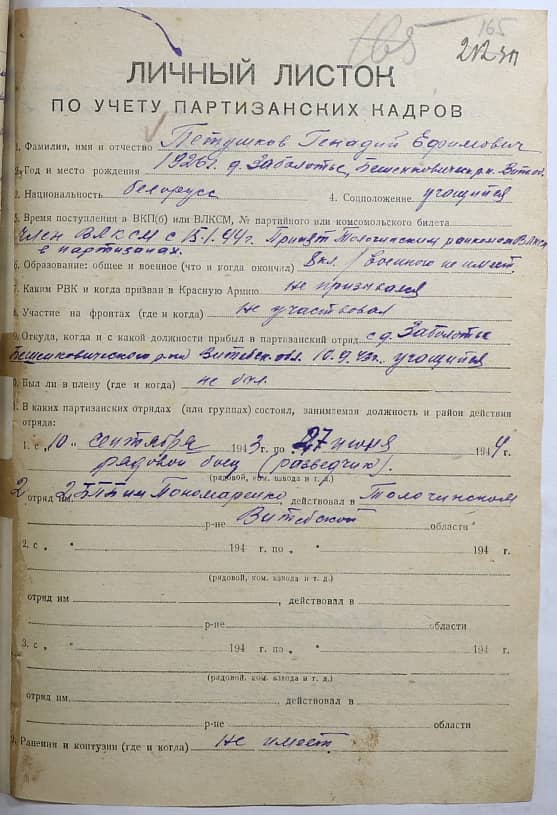 165
165
ЛИЧНЫЙ ЛИСТОК
ПО УЧЕТУ ПАРТИЗАНСКИХ КАДРОВ
1. Фамилия, имя и отчество Петушков Генадий Ефимович
2. Год и место рождения 1926 г. д. Заболотье, Бешенковическ. р-н Витеб.
3. Национальность белорусс 4. Соцположение учащийся
5. Время поступления в ВКП(б) или ВЛКСМ, № партийного или комсомольского билета
член ВЛКСМ с 15.1.44г. Принят Толочинским райкомом ВЛКСМ
в партизанах.
6. Образование: общее и военное (что и когда окончил) 8 кл. / военного не имеет
7. Каким РВК и когда призван в Красную Армию не призывался
8. Участие на фронтах (где и когда) не участвовал
9. Откуда, когда и с какой должности прибыл в партизанский отряд с д. Заболотье
Бешенковического р-на Витебск. обл. 10.9.43г. учащийся
10. Был ли в плену (где и когда) не был
11. В каких партизанских отрядах (или группах) состоял, занимаемая должность и район действия
отряда:
1. с „10" сентября 1943 г. по „27 июня 1944
рядовой боец (разведчик).
(рядовой, ком. взвода и т. д.)
2 отряд им. 2 БПП им Пономаренко, действовал в Толочинском
р-не Витебской области
2. с „ " 194 г. по „ " 194 г.
(рядовой, ком. взвода и т. д.)
отряд им , действовал в
р-не области
3. с „ " 194 г. по „ " 194 г.
(рядовой, ком. взвода и т. д.)
отряд им. , действовал в
р-не области
Ранения и контузии (где и когда) не имеет